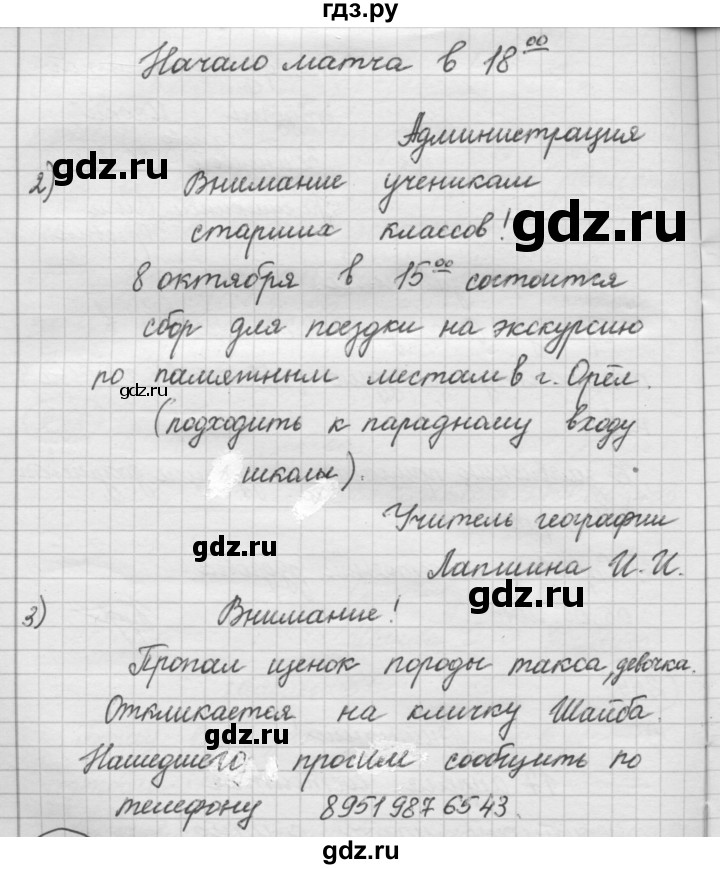 гдз.ру
Начало матча в 18⁰⁰
Администрация
gdz.ru
2) Внимание ученикам
старших классов!
gdz.ru
8 октября в 15⁰⁰ состоится
сбор для поездки на экскурсию
по памятным местам в г. Орёл.
gdz.ru
(подходить к парадному входу
школы).
Учитель географии
gdz.ru
Лапшина И. И.
3) Внимание!
gdz.ru
Пропал щенок породы такса, девочка.
Откликается на кличку Шайба.
gdz.ru
Нашедшего просим сообщить по
телефону 89519876543.
gdz.ru